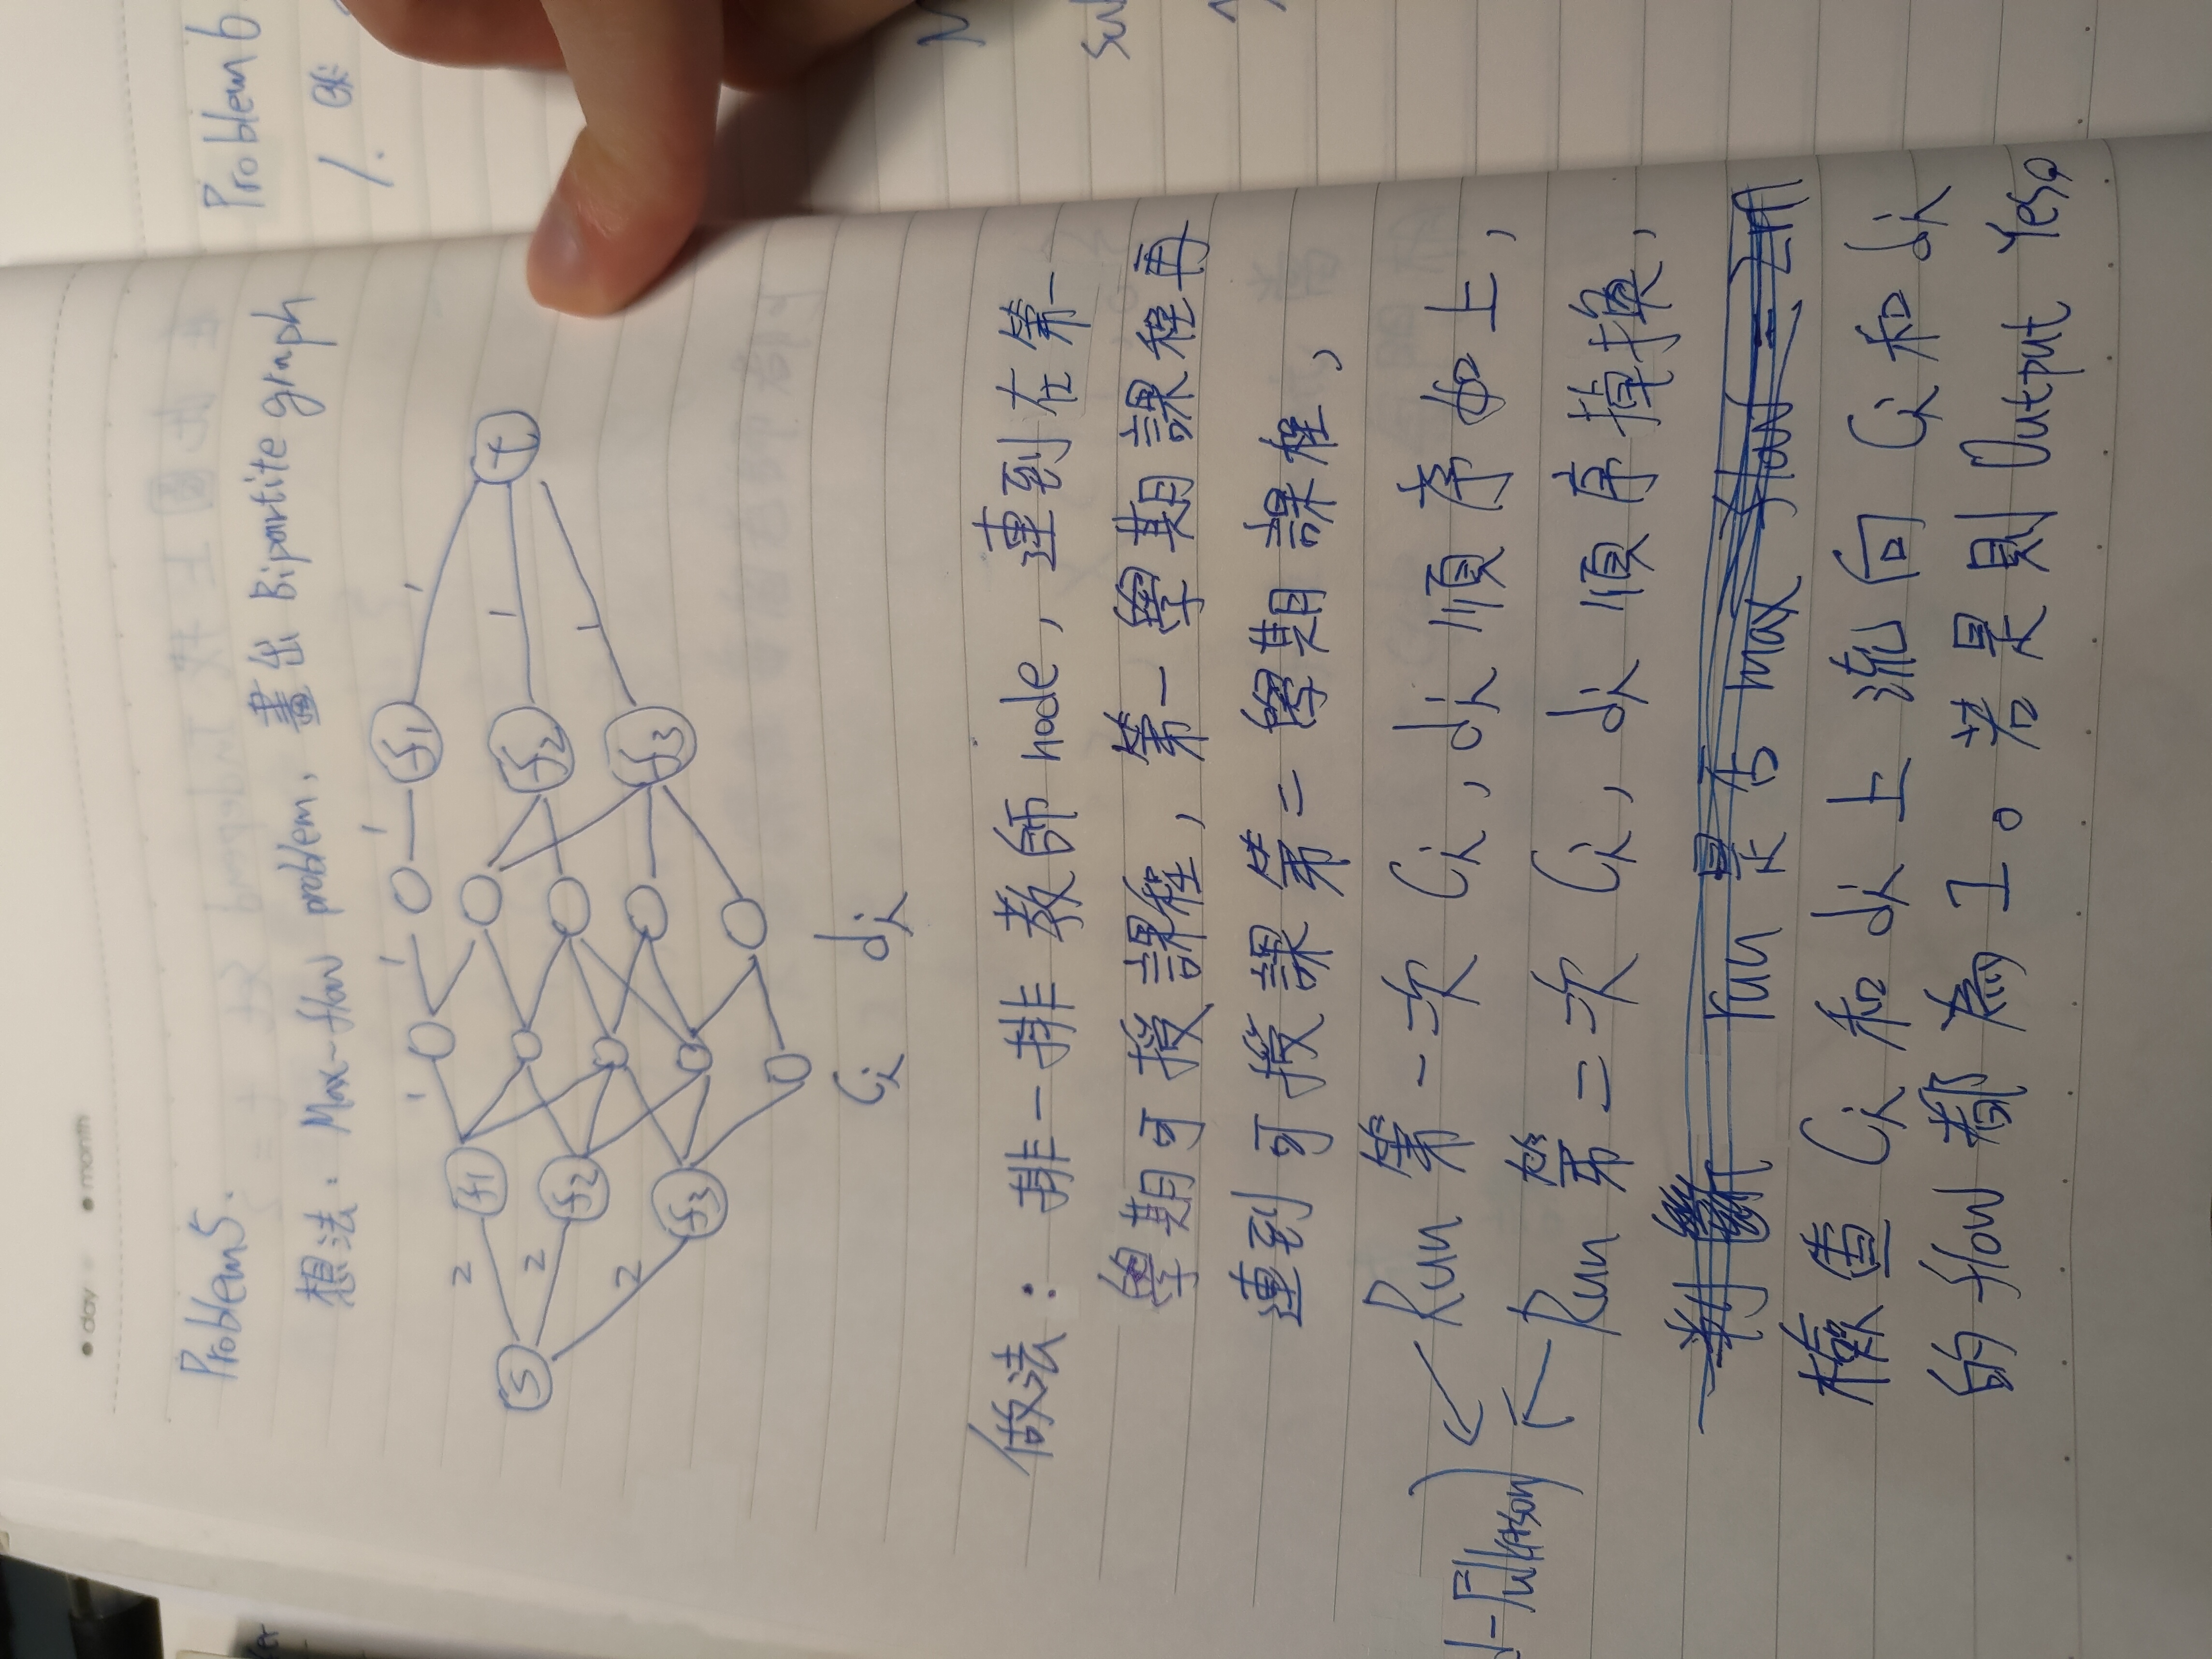 day month
Problem5.
想法: Max-flow problem, 畫出 Bipartite graph
1 1 1 f1 1
2 f1
s 2 f2 1 t
2 f2
f3 1
f3
Ci di
做法: 排一排 教師 node, 連到在第一
學期可授課程, 第一學期課程再
連到可授課第二學期課程,
Run 第一次 Ci, di 順序如上,
d-Fulkerson)
Run 第二次 Ci, di 順序掉換,
判斷 run 是否 max flow = 2m
檢查 Ci 和 di 上 流向 Ci 和 di
的 flow 都為 1。若是則 Output Yes。
Problem 6
1.